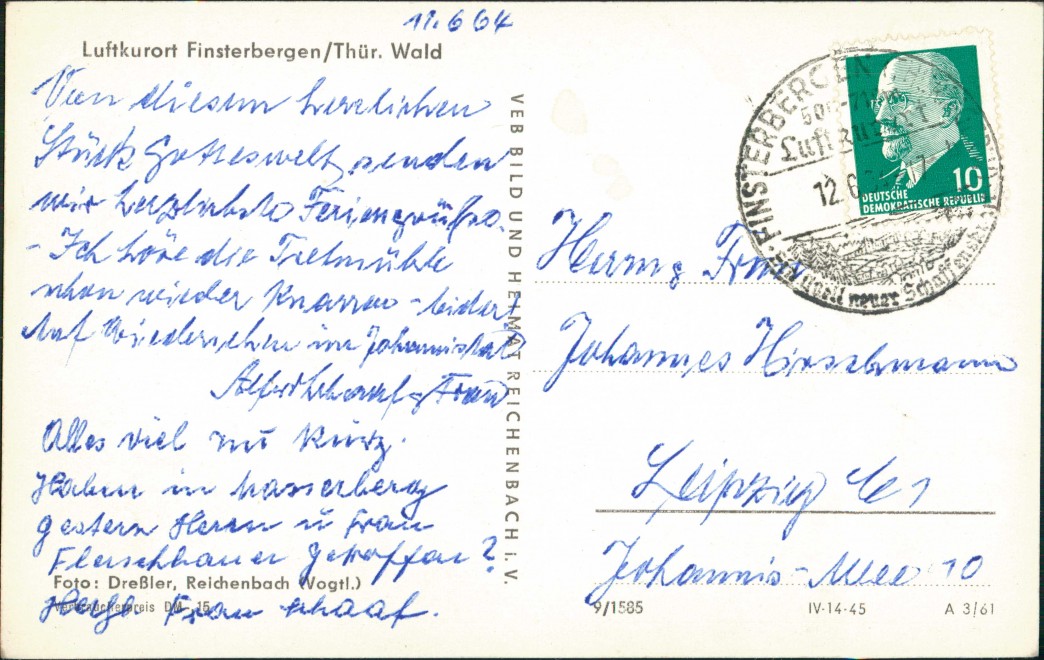 11.6.64
Luftkurort Finsterbergen/Thür. Wald
Von diesem herrlichen
Stück Gotteswelt senden
wir herzliebste Feriengrüße.
- Ich höre die Tretmühle
schon wieder knarren - leider!
Auf Wiedersehen im Johannistal
Alfred Schaaf u Frau
Alles viel zu kurz.
Haben in Masserberg
gestern Herrn u Frau
Fleischhauer getroffen
Foto: Dreßler, Reichenbach (Vogtl.)
Verbraucherpreis DM -,15
Frau Schaaf.
VEB BILD UND HEIMAT REICHENBACH i. V.
FINSTERBERGEN
500-
Luftkurort
12.6.
neuer Schaffens
10
DEUTSCHE
DEMOKRATISCHE REPUBLIK
Herrn u Frau
Johannes Hirschmann
Leipzig C1
Johannis-Allee 10
9/1585
IV-14-45
A 3/61